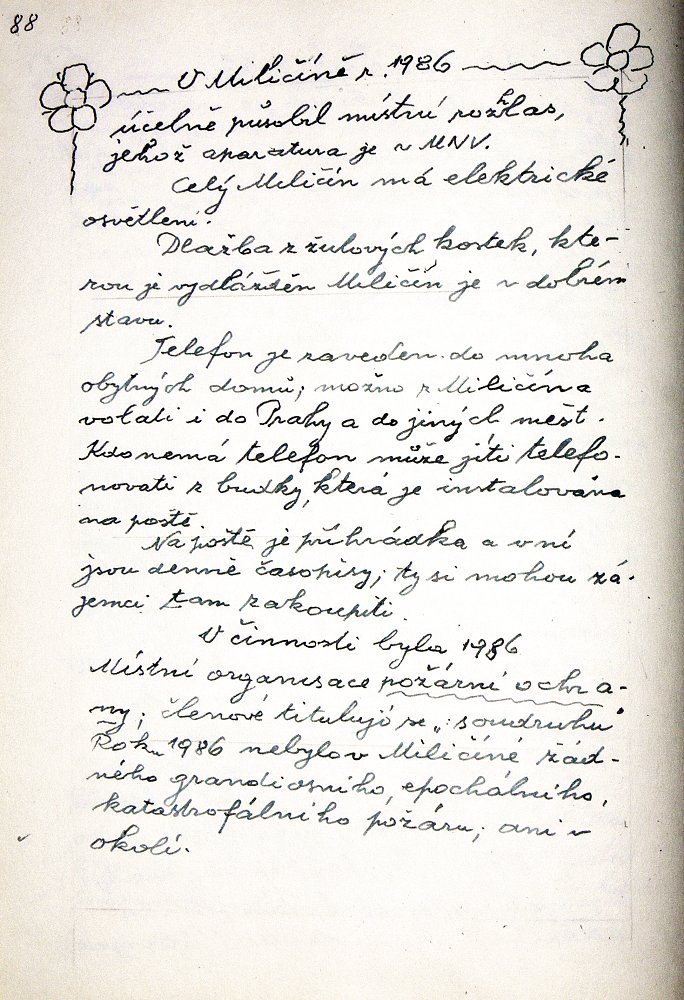 88
V Miličíně r. 1986
účelně působil místní rozhlas,
jehož aparatura je v MNV.
Celý Miličín má elektrické
osvětlení.
Dlažba z žulových kostek, kte-
rou je vydlážděn Miličín je v dobrém
stavu.
Telefon je zaveden do mnoha
obytných domů; možno z Miličína
volati i do Prahy a do jiných měst.
Kdo nemá telefon může jíti telefo-
novati z budky, která je instalována
na poště.
Na poště je přihrádka a v ní
jsou denně časopisy; ty si mohou zá-
jemci tam zakoupiti.
V činnosti byla 1986
Místní organisace požární ochra-
ny; členové titulují se „soudruhu"
Roku 1986 nebylo v Miličíně žád-
ného grandiosního, epochálního,
katastrofálního požáru; ani v
okolí.